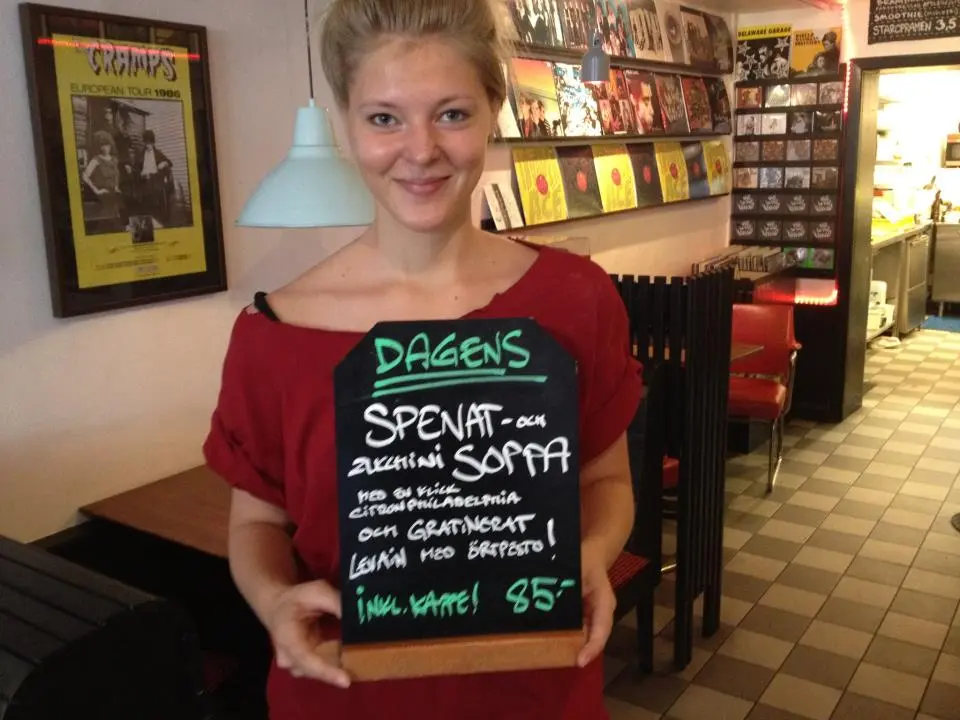 The CRAMPS
EUROPEAN TOUR 1986
DELAWARE GARAGE
SMOOTHIE
STAROPRAMEN 3,5
DAGENS
SPENAT-OCH
ZUCCHINI SOPPA
MED EN KLICK
CITRONPHILADELPHIA
OCH GRATINERAT
LEVAIN MED ÖRTPESTO!
INKL. KAFFE! 85:-